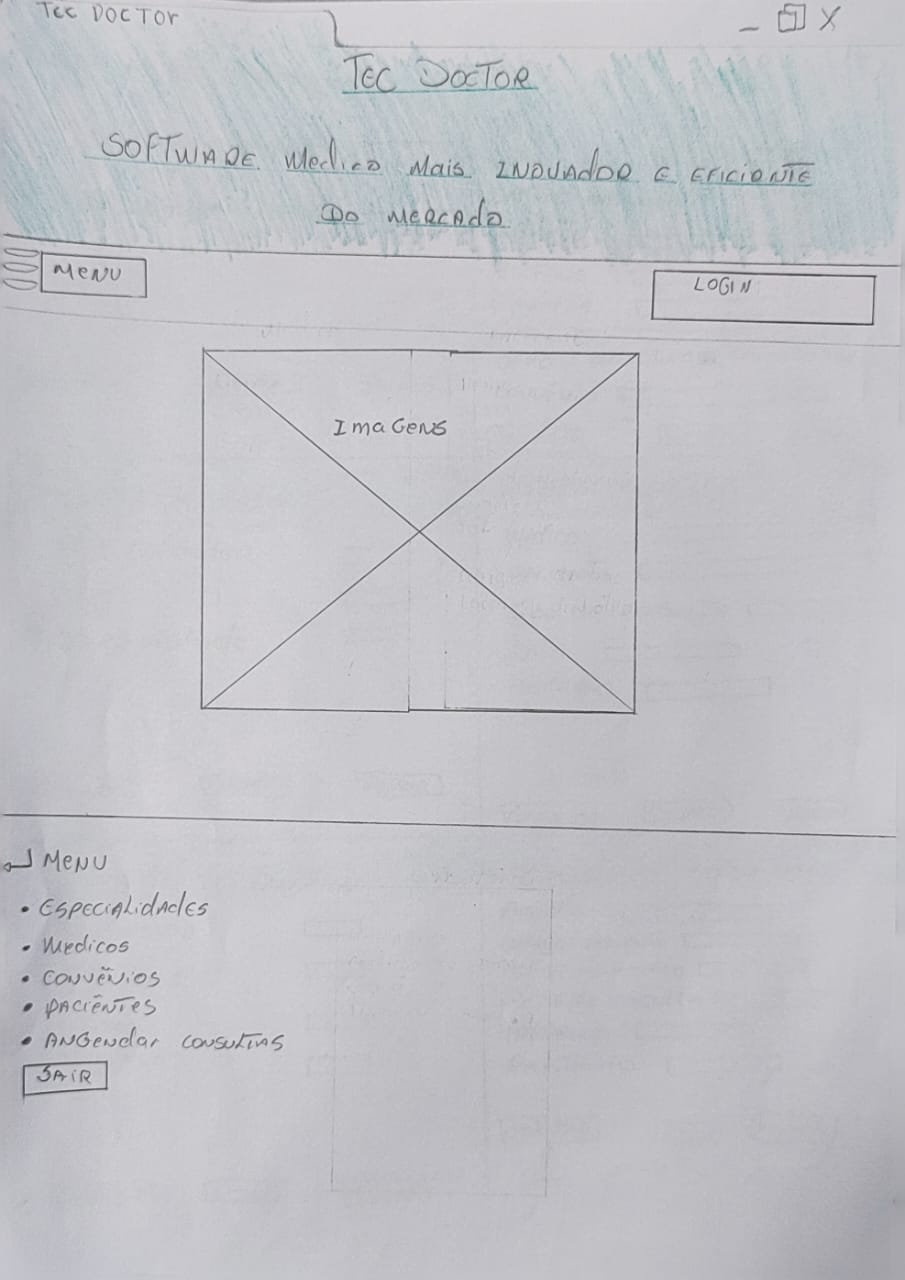 TEC DOCTOR
TEC DOCTOR
SOFTWARE Medico Mais INOVADOR E EFICIENTE
Do MERCADO
MENU
LOGIN
ImaGens
MENU
• ESPECIALIdAdES
• Medicos
• CONVÊNIOS
• PACIENTES
• ANGENdar CONSULTAS
SAIR